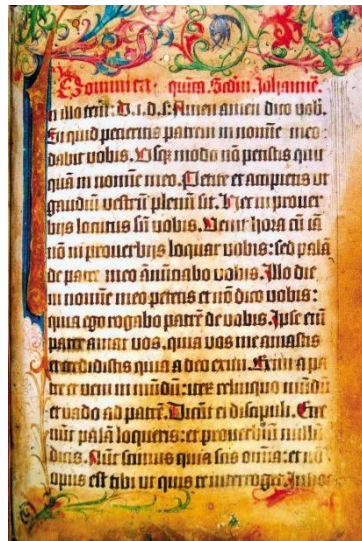 Dominica quīta. Scdm Johannē.
In illo tēpr: D. i. d. s. Amen amen dico vob.
Si quid petieritis patrem in nomine meo
dabit vobis. Vsqz modo nō petistis quic
quā in nomine meo. Petite et accipietis ut
gaudiū vestrū plenū sit. Hec in prouer
bijs locutus sū vobis. Venit hora cū iā
nō in prouerbijs loquar vobis: sed palā
de patre meo ānūciabo vobis. Illo die
in nomine meo petetis et nō dico vobis:
quia ego rogabo patrē de vobis. Ipse eīm
pater amat vos. quia vos me amastis
et credidistis quia a deo exiui. Exiui a pa
tre et veni in mūdū: iterū relinquo mūdū
et vado ad patrē. Dicūt ei discipuli. Ecce
nūc palā loqueris: et prouerbiū nullū
dicis. Nūc scimus quia scis omīa: et nō
opus est tibi ut quis te interroget. In hoc